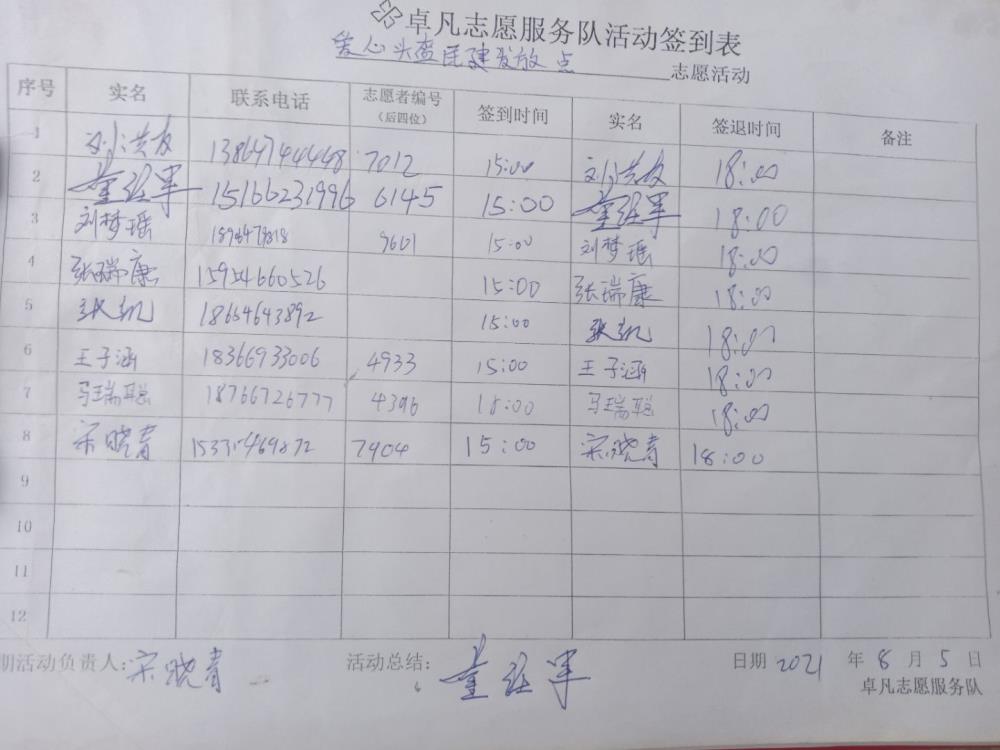 卓凡志愿服务队活动签到表
爱心头盔民建发放点 志愿活动
序号 实名 联系电话 志愿者编号（后四位） 签到时间 实名 签退时间 备注
1 刘洪友 13864744448 7012 15:00 刘洪友 18:00
2 董经军 15166231996 6145 15:00 董经军 18:00
3 刘梦瑶 9601 15:00 刘梦瑶 18:00
4 张瑞康 15954660526 15:00 张瑞康 18:00
5 张凯 18654643892 15:00 张凯 18:00
6 王子涵 18366933006 4933 15:00 王子涵 18:00
7 马瑞聪 18766726777 4396 18:00 马瑞聪 18:00
8 宋晓青 7904 15:00 宋晓青 18:00
9
10
11
12
期活动负责人：宋晓青 活动总结：董经军 日期 2021 年 8 月 5 日
卓凡志愿服务队